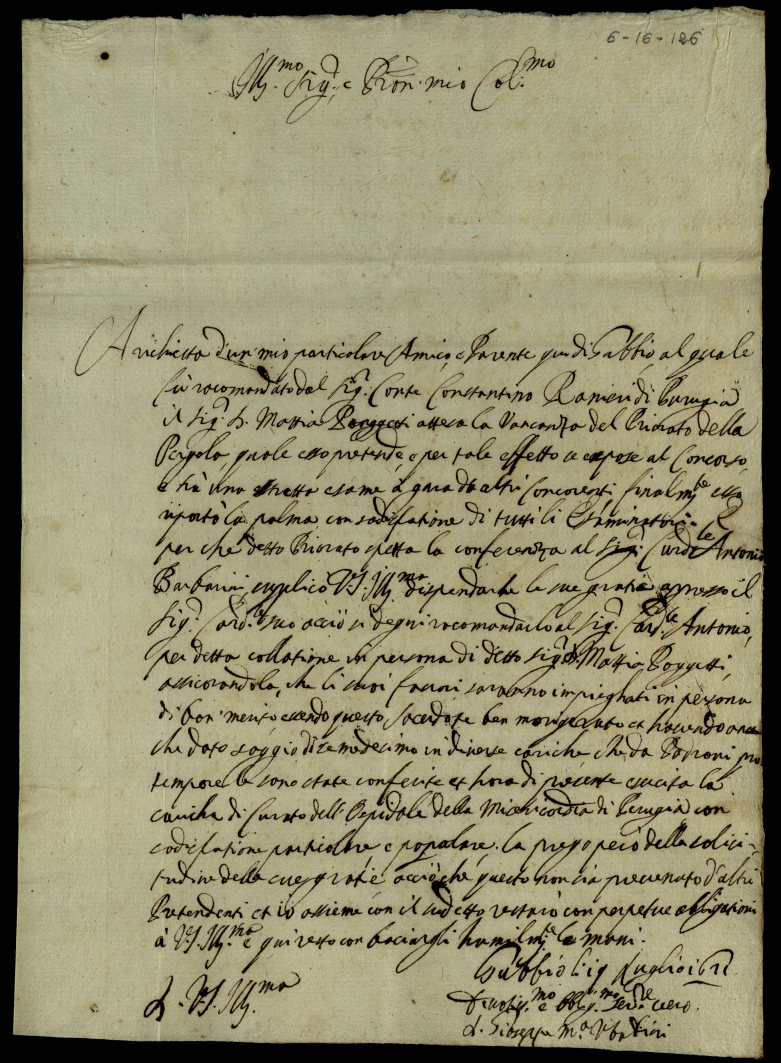 6-16-126
Ill.mo Sig.r e Pron. mio Col.mo
A richiesta d'un mio particolare Amico, e Parente qui di Gubbio, al quale
fù racomandato dal Sig.r Conte Constantino Ranieri di Perugia
il Sig.r D. Mattia Poggetti attesa la Vancanza del Priorato della
Pergola, quale esso pretende, e per tale effetto se espose al Concorso,
e frà una stretta esame à gara d'altri Concorenti finalm.te esso
riportò la palma con sodisfatione di tutti li Esaminatori. E
per che detto Priorato spetta la conferenza al Sig.r Card.le Antonio
Barbarini, suplico V.S. Ill.ma dispendarke le sue gratie appresso il
Sig.r Card.le suo acciò si degni racomandarlo al Sig.r Card.le Antonio,
per detta collatione in persona di detto Sig.r D. Mattia Poggetti,
assicorandola, che li suoi favori saranno impieghati in persona
di bon merito, essendo questo Sacerdote ben morigerato et havendo anco
che dato saggio di se medesimo in diverse cariche che da Padroni pro
tempore le sono state conferite et hora di presente esercita la
caricha di Curato dell'Ospidale della Misericordia di Perugia con
sodisfatione particolare e popolare. la prego però della solici-
tudine delle sue gratie acciò che questo non sia prevenuto d'altri
Pretendenti et io assieme con il sudetto restarò con perpetue obligationi
à V.S. Ill.ma e qui resto con baciargli humilm.te le mani.
Gubbio li 19 luglio 1671
D. V.S. Ill.ma
Devotis.mo e Oblig.mo Ser.re vero
D. Gioseppe M.a